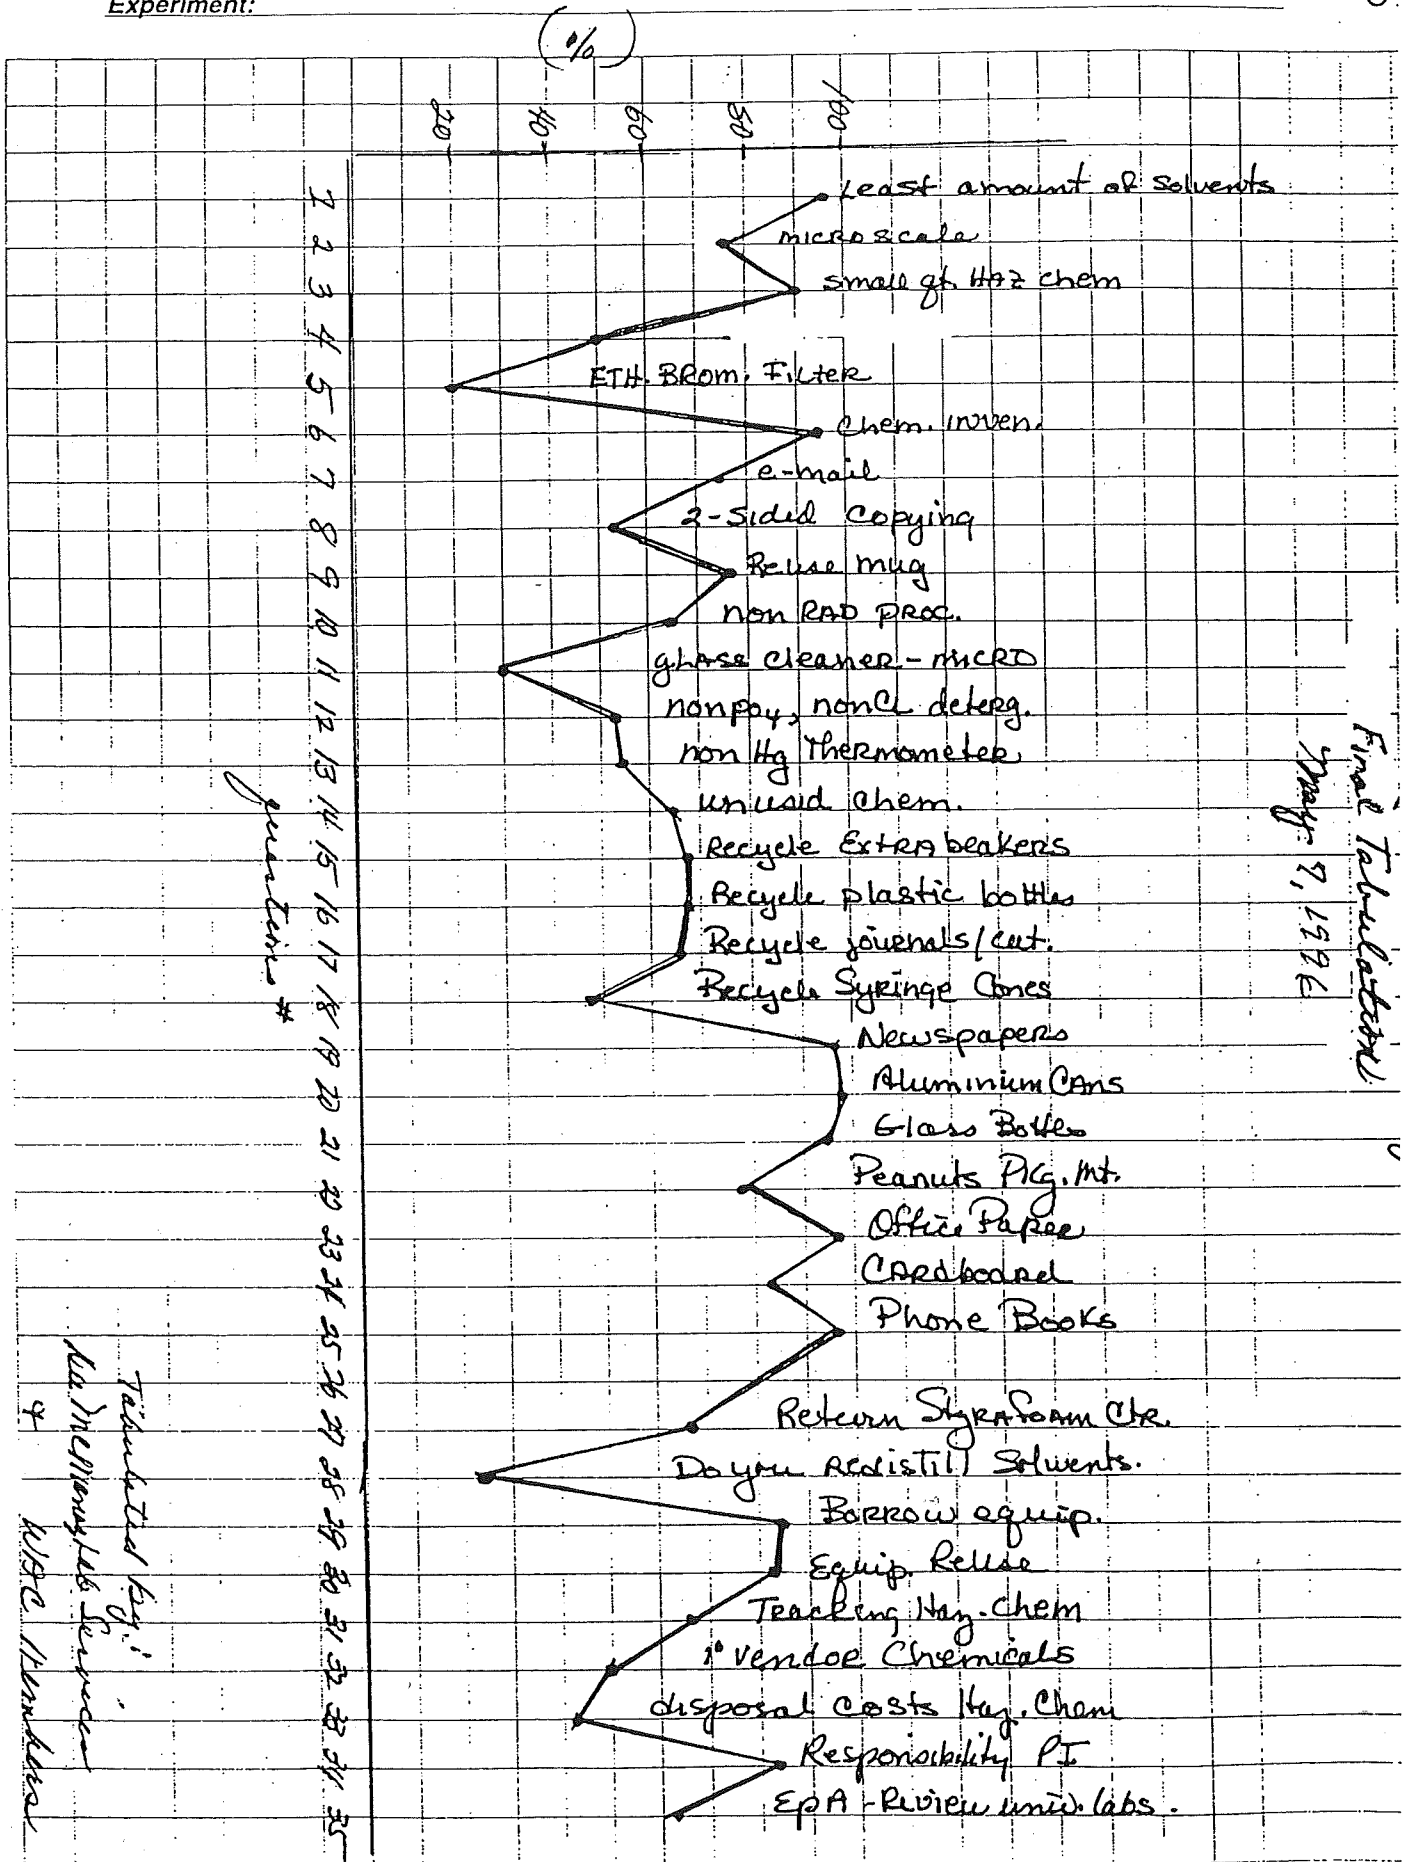 Experiment:
(%)
20
40
60
80
100
1
2
3
4
5
6
7
8
9
10
11
12
13
14
15
16
17
18
19
20
21
22
23
24
25
26
27
28
29
30
31
32
33
34
35
questions #
Least amount of Solvents
microscale
small qt. HAZ chem
ETH. BROM. FILTER
Chem. inven.
e-mail
2-Sided Copying
Reuse mug
non RAD PROC.
glass cleaner - MICRO
nonpo4, nonCl deterg.
non Hg Thermometer
unused chem.
Recycle ExtRA beakers
Recycle plastic bottles
Recycle journals/cat.
Recycle Syringe Cones
Newspapers
Aluminium CAns
Glass Bottles
Peanuts Pkg. Mt.
Office Paper
CARdboard
Phone Books
Return StyRAfoam Ctr.
Do you Redistill Solvents.
Borrow equip.
Equip. Reuse
Tracking Haz. Chem
1° Vendor Chemicals
disposal costs Haz. Chem
Responsibility PI
EPA - Review univ. labs.
Final Tabulation
May 7, 1996
Tabulated by:
Services
Members